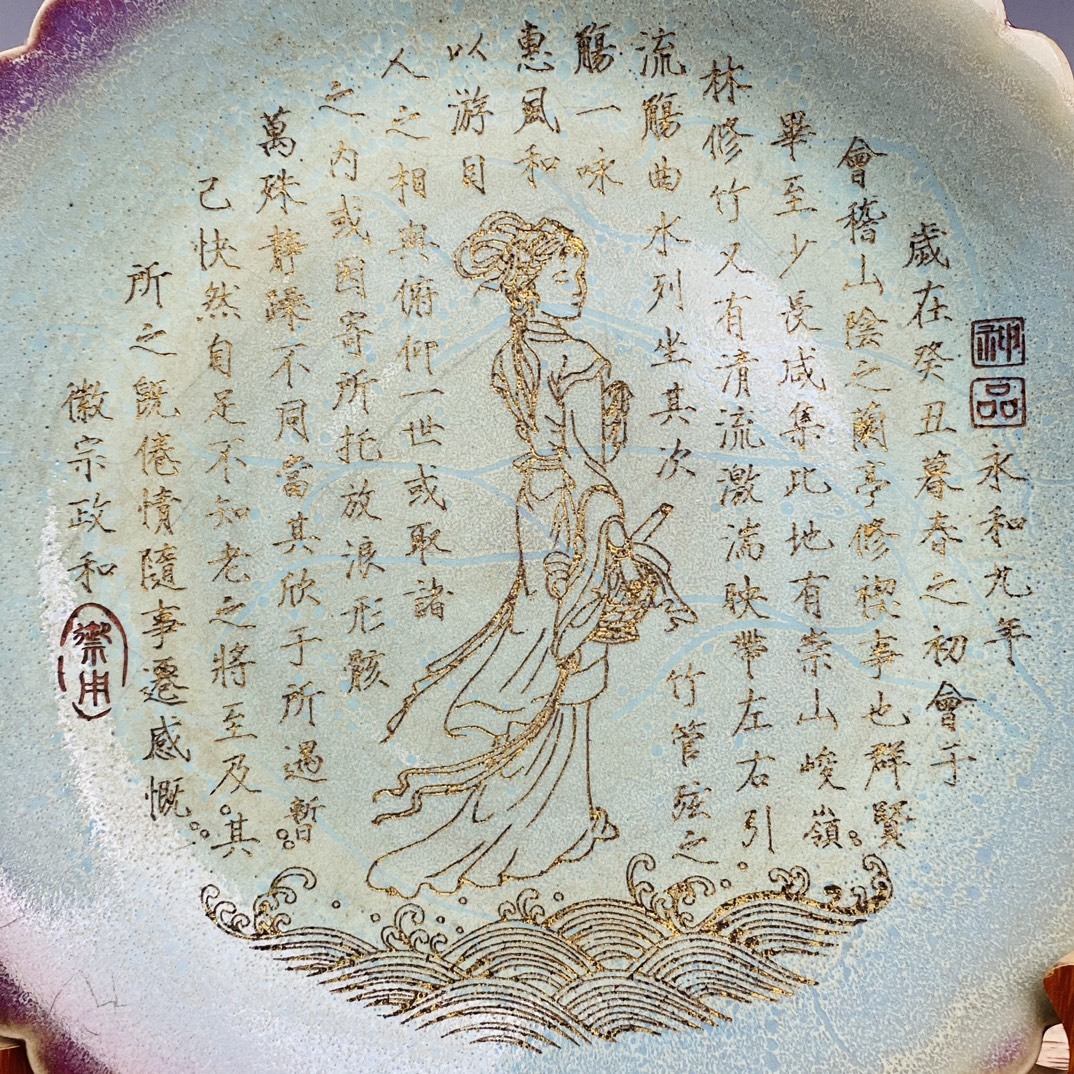 神品
永和九年
歲在癸丑暮春之初會手
會稽山陰之蘭亭修禊事也群賢
畢至少長咸集比地有崇山峻嶺
林修竹又有清流激湍映帶左右引
流觴曲水列坐其次
竹管弦之
觴一咏
惠風和
以游目
人之相與俯仰一世或取諸
之内或因寄所托放浪形骸
萬殊靜躁不同當其欣于所遇暫
己快然自足不知老之將至及其
所之既倦情隨事遷感慨
徽宗政和
禦用